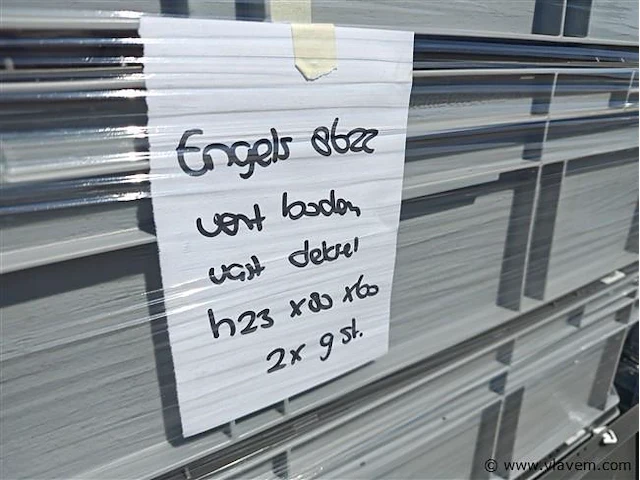 Engels 8622
vast deksel
h23 x80 x60
2x 9 st.
© www.vlavem.com